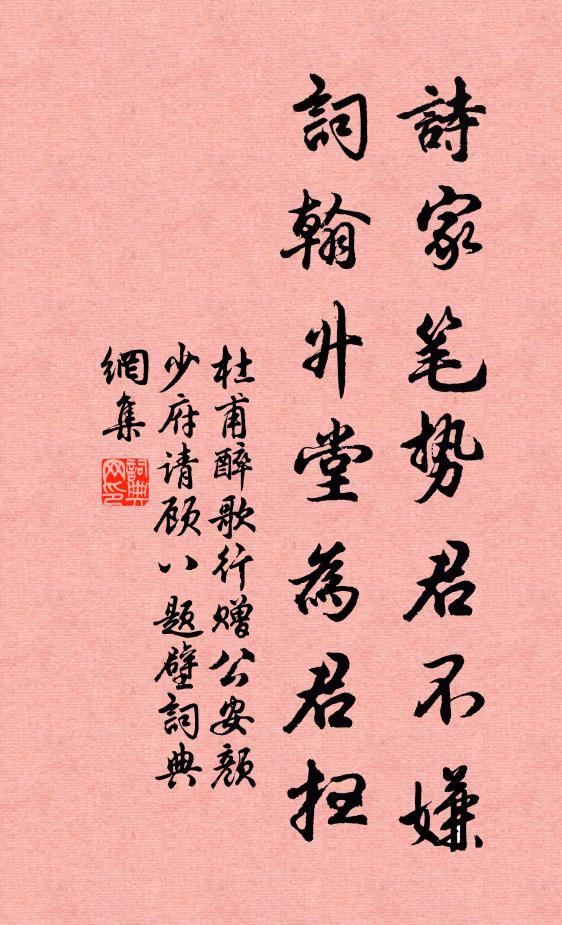 詩家笔势君不嫌
詞翰升堂為君扫
杜甫醉歌行赠公安颜
少府请顾八题壁詞典
網集
詞典
网印